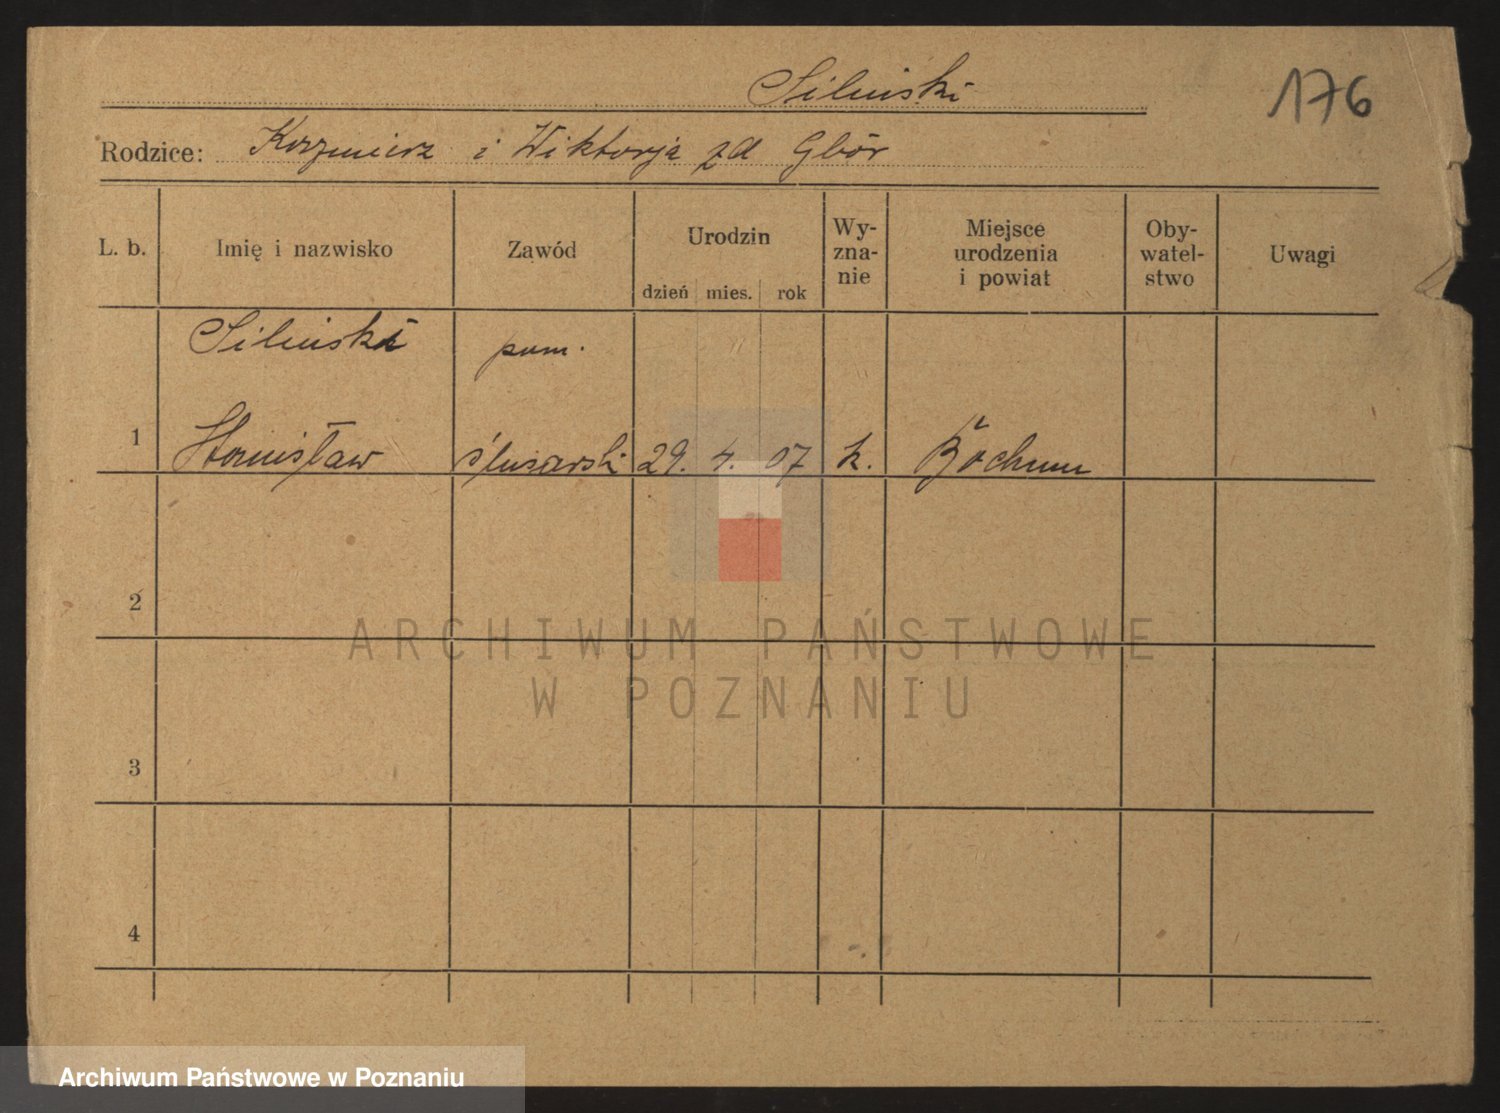 Siliński
176
Rodzice: Kazimierz i Wiktorja zd Gbór
L. b.
Imię i nazwisko
Zawód
Urodzin
dzień mies. rok
Wy-
zna-
nie
Miejsce
urodzenia
i powiat
Oby-
watel-
stwo
Uwagi
Siliński pom.
1 Stanisław ślusarski 29. 4. 07 k. Bochum
2
3
4
ARCHIWUM PAŃSTWOWE
W POZNANIU
Archiwum Państwowe w Poznaniu